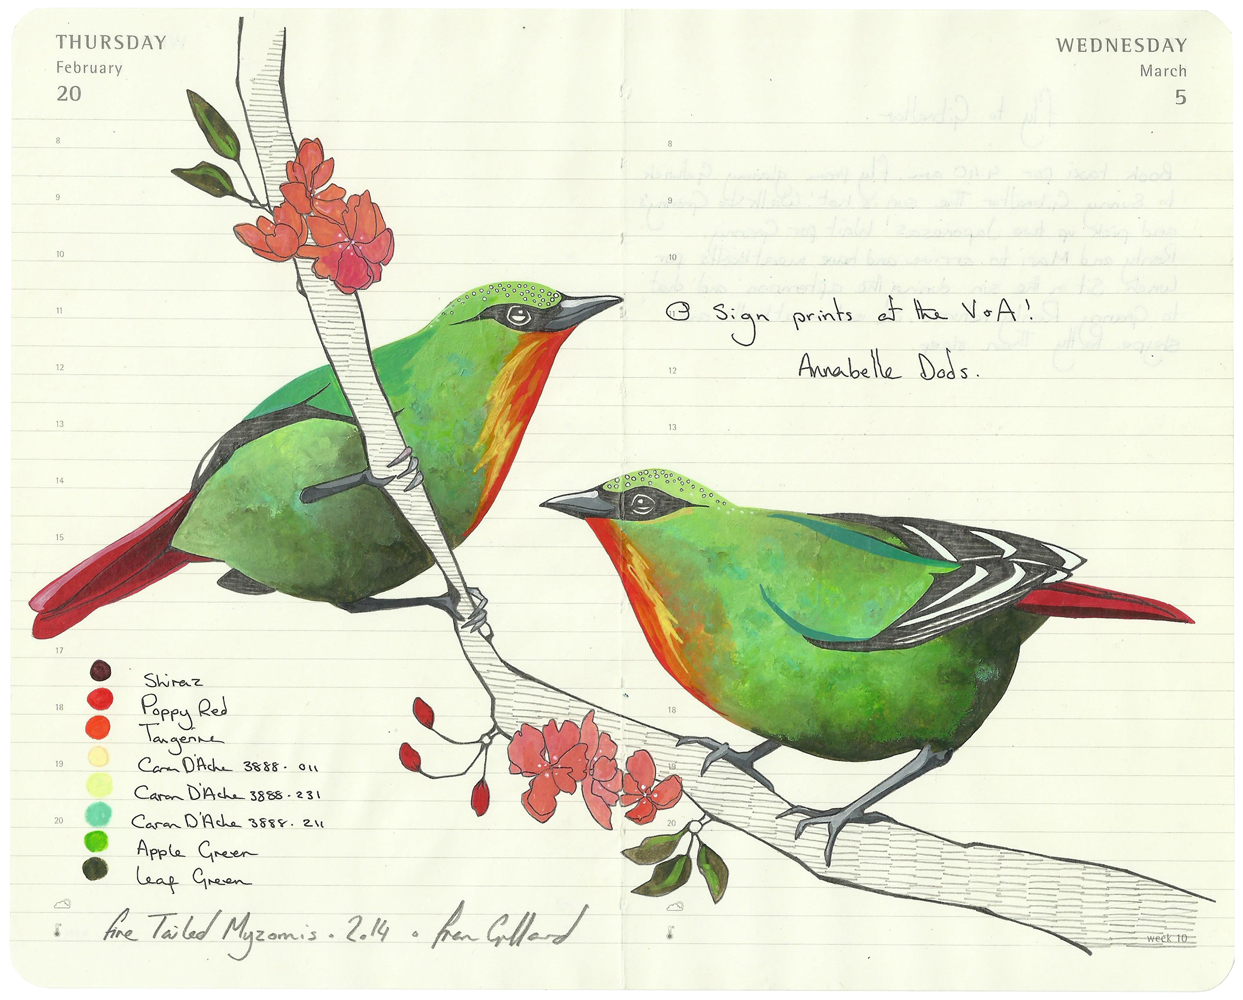 THURSDAY
February
20
8
9
10
11
12
13
14
15
17
18
19
20
Shiraz
Poppy Red
Tangerine
Caran D'Ache 3888.011
Caran D'Ache 3888.231
Caran D'Ache 3888.211
Apple Green
Leaf Green
Fire Tailed Myzornis . 2014 . Fran Giffard
WEDNESDAY
March
5
8
10
Sign prints at the V&A!
12
Annabelle Dods.
13
18
19
20
week 10